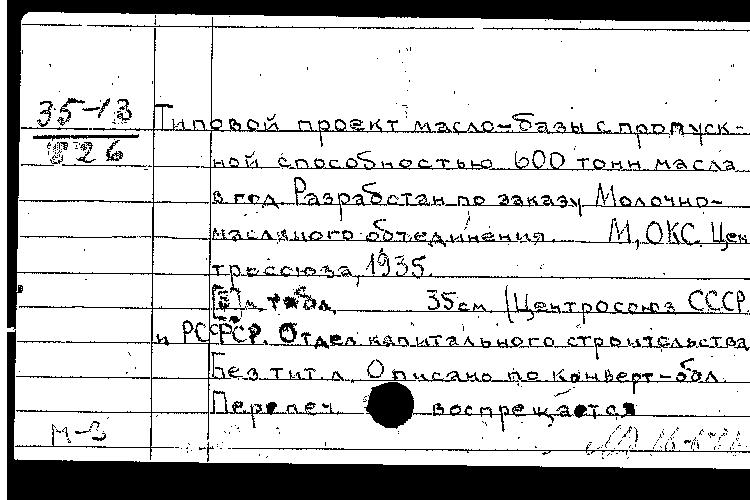 35-13
826
Типовой проект масло-базы с пропуск-
ной способностью 600 тонн масла
в год. Разработан по заказу Молочно-
масляного объединения. М, ОКС Цен
тросоюза, 1935.
л. табл. 35см. (Центросоюз СССР
и РСФСР. Отдел капитального строительства
Без тит. л. Описано по конверт-обл.
Перепеч. воспрещается
М-3